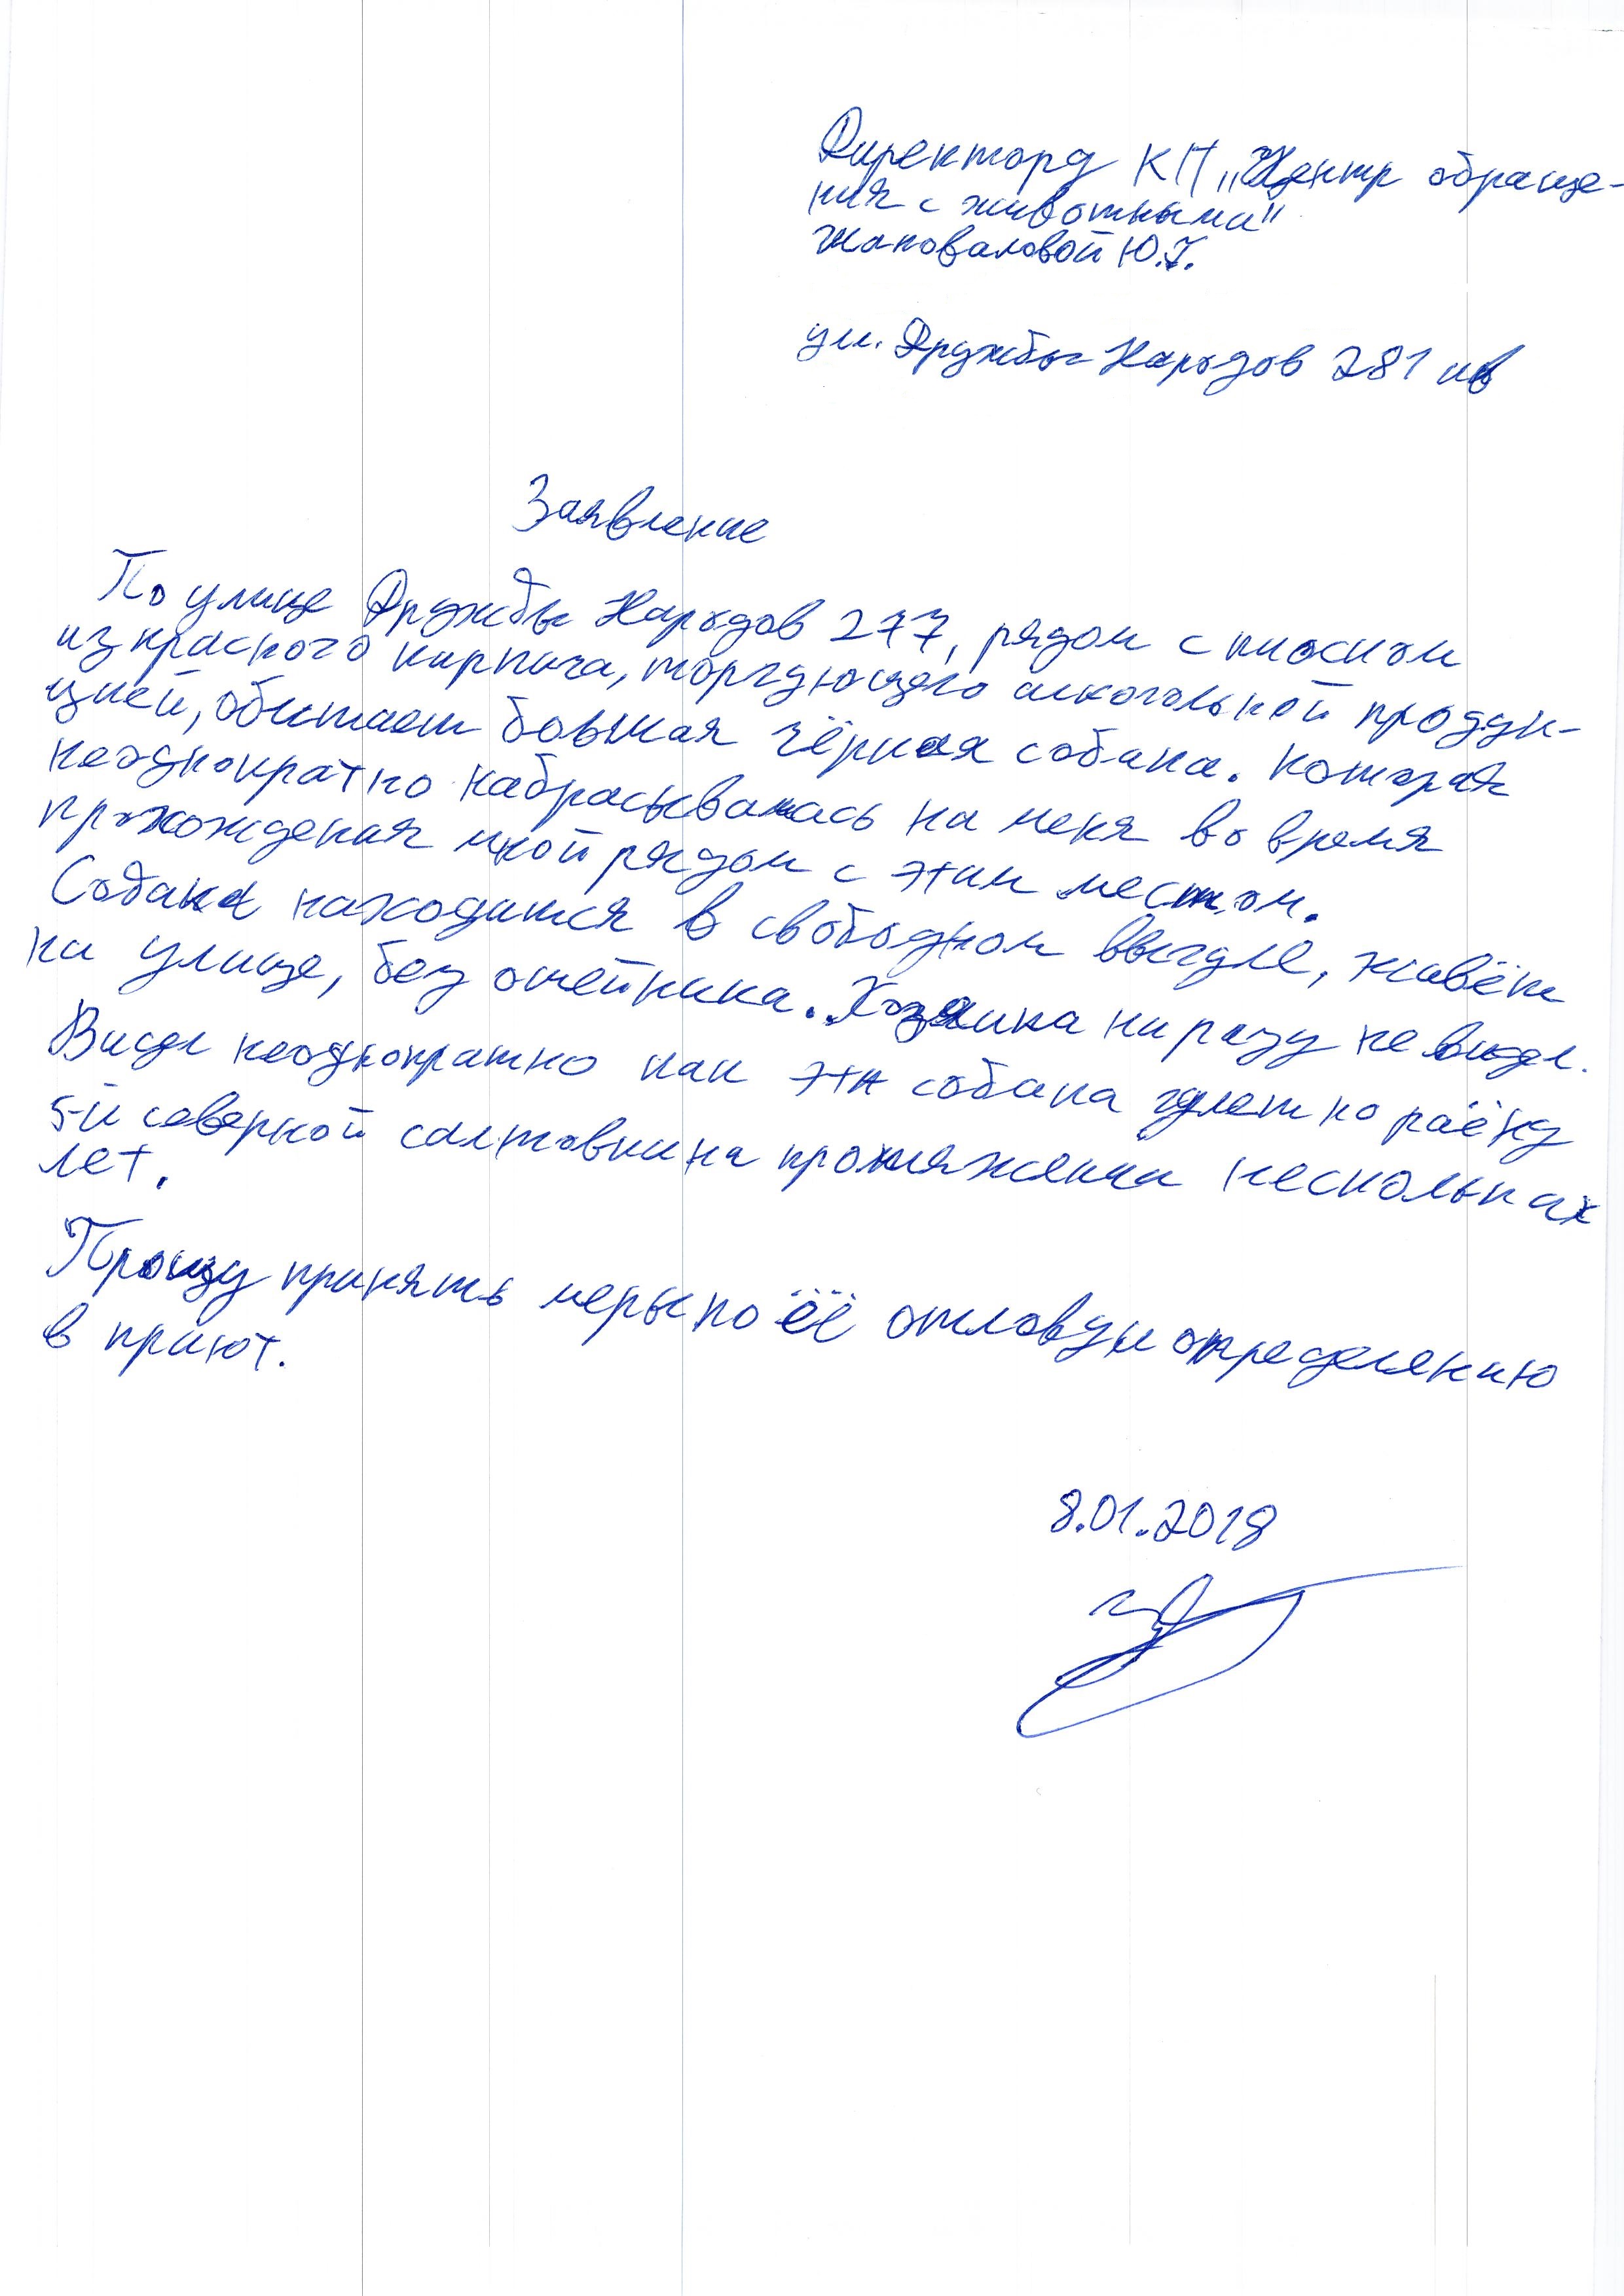 Директору КП "Центр обраще-
ния с животными"
Шаповаловой Ю.Г.
ул. Дружбы Народов 281 кв
Заявление
По улице Дружбы Народов 277, рядом с киоском
из красного кирпича, торгующего алкогольной продук-
цией, обитает большая чёрная собака. Которая
неоднократно набрасывалась на меня во время
прохождения мной рядом с этим местом.
Собака находится в свободном выгуле, живёт
на улице, без ошейника. Хозяина ни разу не видел.
Видел неоднократно как эта собака гуляет по раёну
5-й северной салтовки на протяжении нескольких
лет.
Прошу принять меры по её отлову и определению
в приют.
8.01.2018